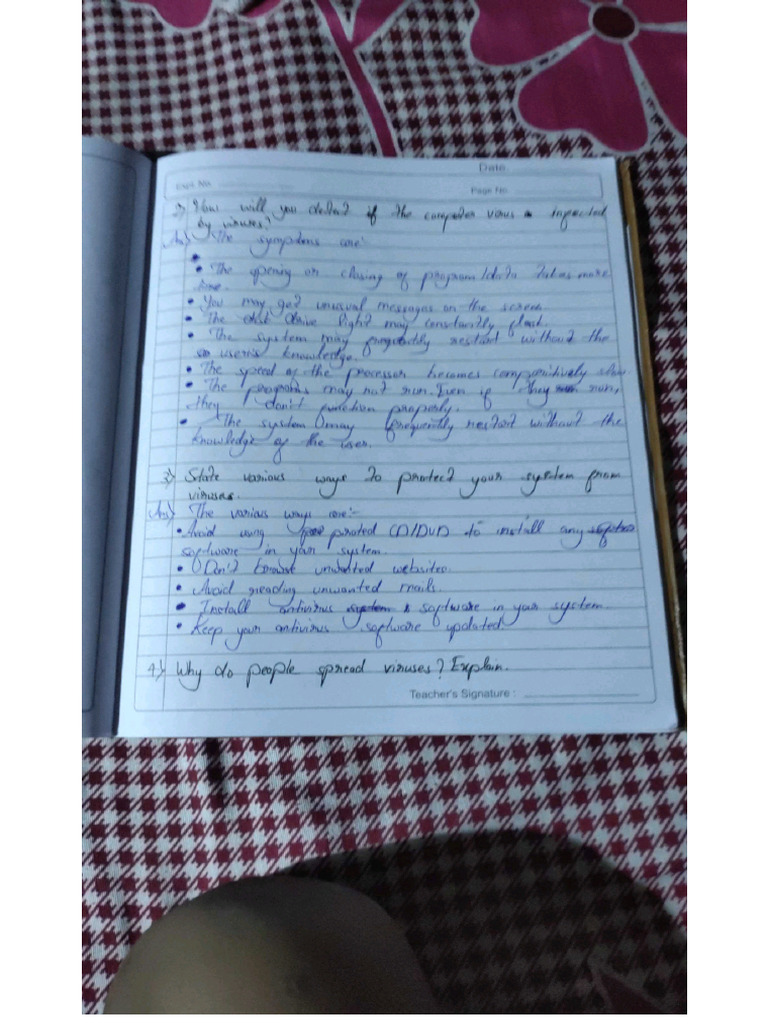 Date
Expt. No.
Page No.
2) How will you detect if the computer virus is infected
by viruses?
Ans) The symptoms are:
• The opening or closing of program/data takes more
time.
• You may get unusual messages on the screen
• The disk drive light may constantly flash.
• The system may frequently restart without the
user's knowledge.
• The speed of the processor becomes comparitively slow
• The programs may not run. Even if they run,
they don't function properly.
• The system may frequently restart without the
knowledge of the user.
3) State various ways to protect your system from
viruses.
Ans) The various ways are:-
• Avoid using pirated CD/DVD to install any
software in your system.
• Don't browse unwanted websites.
• Avoid reading unwanted mails.
• Install antivirus software in your system.
• Keep your antivirus software updated
4) Why do people spread viruses? Explain.
Teacher's Signature :